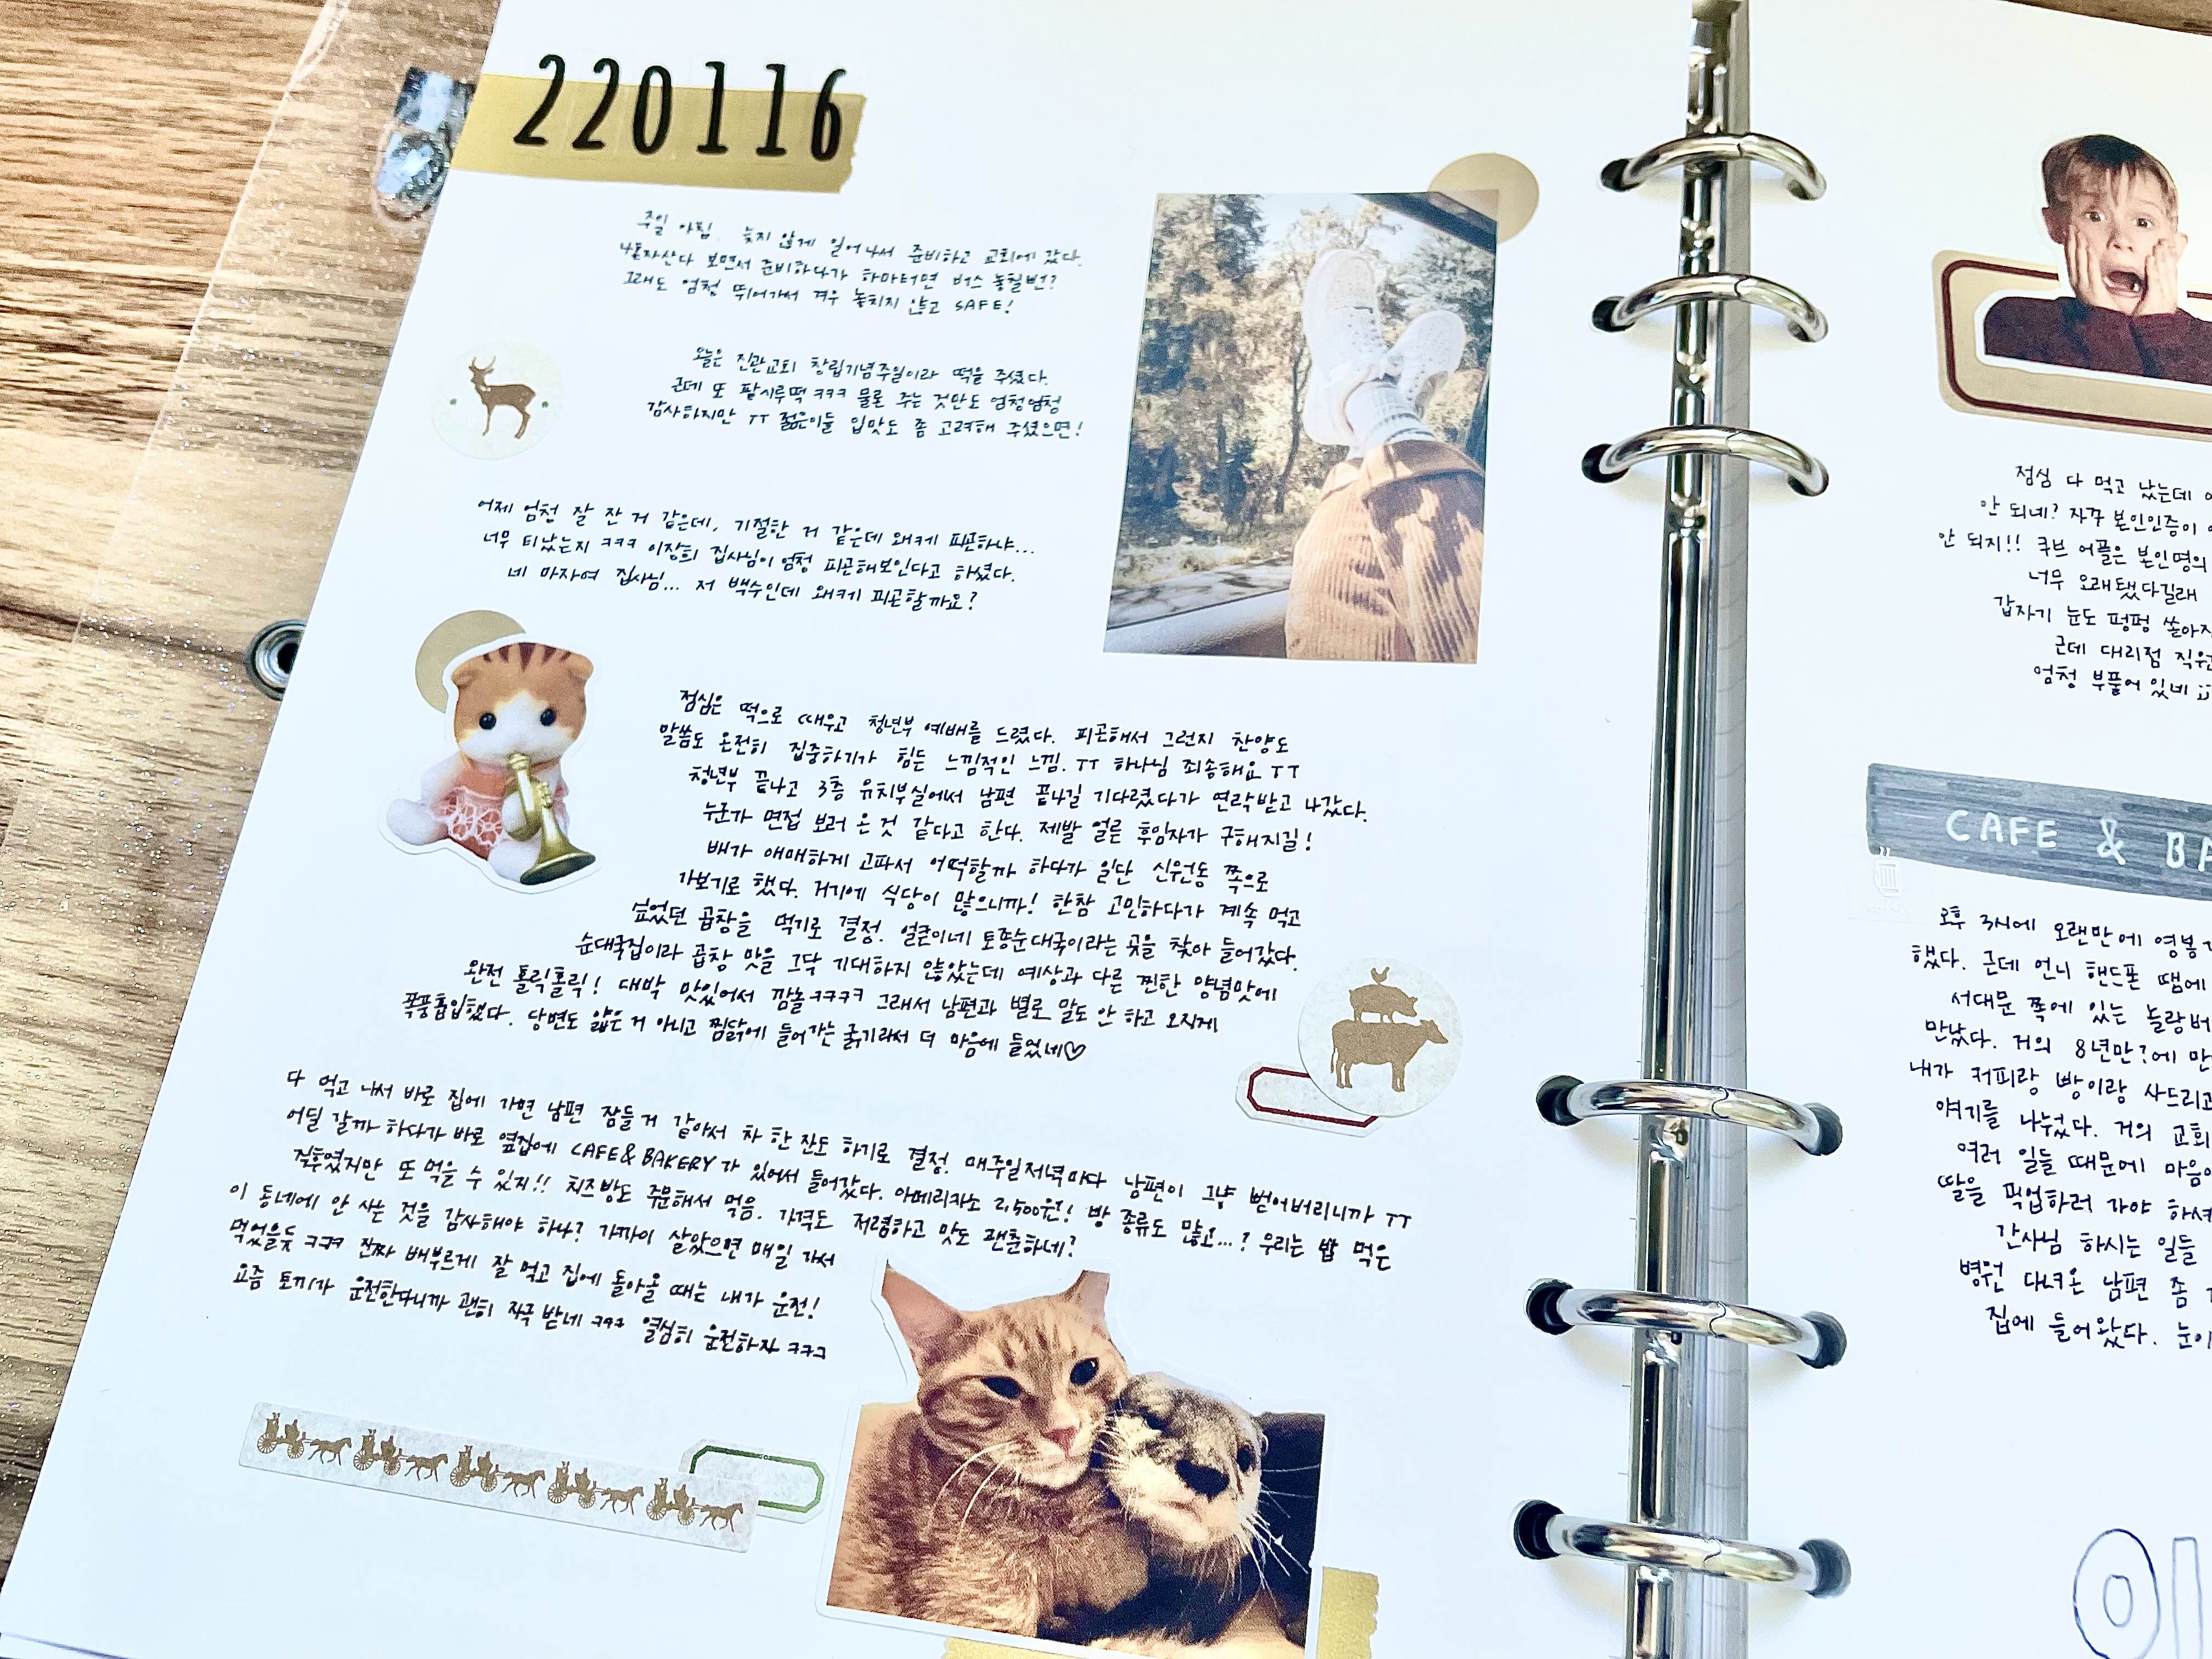 220116
주일 아침. 늦지 않게 일어나서 준비하고 교회에 갔다.
나혼자산다 보면서 준비하다가 하마터면 버스 놓칠번?
그래도 엄청 뛰어가서 겨우 놓치지 않고 SAFE!
오늘은 진관교회 창립기념주일이라 떡을 주셨다.
근데 또 팥시루떡 ㅋㅋㅋ 물론 주는 것만도 엄청엄청
감사하지만 ㅠㅠ 젊은이들 입맛도 좀 고려해 주셨으면!
어제 엄청 잘 잔 거 같은데, 기절한 거 같은데 왜케 피곤하냐...
너무 티났는지 ㅋㅋㅋ 이장희 집사님이 엄청 피곤해보인다고 하셨다.
네 마자여 집사님... 저 백수인데 왜케 피곤할까요?
점심은 떡으로 때우고 청년부 예배를 드렸다. 피곤해서 그런지 찬양도
말씀도 온전히 집중하기가 힘든 느낌적인 느낌. ㅠㅠ 하나님 죄송해요 ㅠㅠ
청년부 끝나고 3층 유치부실에서 남편 끝나길 기다렸다가 연락받고 나갔다.
누군가 면접 보러 온 것 같다고 한다. 제발 얼른 후임자가 구해지길!
배가 애매하게 고파서 어떡할까 하다가 일단 신원동 쪽으로
가보기로 했다. 거기에 식당이 많으니까! 한참 고민하다가 계속 먹고
싶었던 곱창을 먹기로 결정. 얼큰이네 토종순대국이라는 곳을 찾아 들어갔다.
순대국집이라 곱창 맛을 그닥 기대하지 않았는데 예상과 다른 찐한 양념맛에
완전 홀릭홀릭! 대박 맛있어서 깜놀ㅋㅋㅋㅋ 그래서 남편과 별로 말도 안 하고 오지게
폭풍흡입했다. 당면도 얇은 거 아니고 찜닭에 들어가는 굵기라서 더 마음에 들었네♡
다 먹고 나서 바로 집에 가면 남편 잠들 거 같아서 차 한 잔도 하기로 결정. 매주일저녁마다 남편이 그냥 뻗어버리니까 ㅠㅠ
어딜 갈까 하다가 바로 옆집에 CAFE & BAKERY가 있어서 들어갔다. 아메리카노 2,500원! 빵 종류도 많고...? 우리는 밥 먹은
직후였지만 또 먹을 수 있지!! 치즈빵도 주문해서 먹음. 가격도 저렴하고 맛도 괜춘하네?
이 동네에 안 사는 것을 감사해야 하나? 가까이 살았으면 매일 가서
먹었을듯 ㅋㅋㅋ 진짜 배부르게 잘 먹고 집에 돌아올 때는 내가 운전!
요즘 토끼가 운전한다니까 괜히 자극 받네 ㅋㅋㅋ 열심히 운전하자 ㅋㅋㅋ
점심 다 먹고 났는데
안 되네? 자꾸 본인인증이
안 되지!! 쿠브 어플은 본인명의
너무 오래됐다길래
갑자기 눈도 펑펑
근데 대리점 직원
엄청 부풀어 있네
CAFE & BA
오후 3시에 오랜만에
했다. 근데 언니 핸드폰 땜에
서대문 쪽에 있는
만났다. 거의 8년만?에 만
내가 커피랑 빵이랑 사드리고
얘기를 나눴다. 거의 교회
여러 일들 때문에 마음이
딸을 픽업하러 가야 하셔
간사님 하시는 일들
병원 다녀온 남편 좀
집에 들어왔다. 눈이